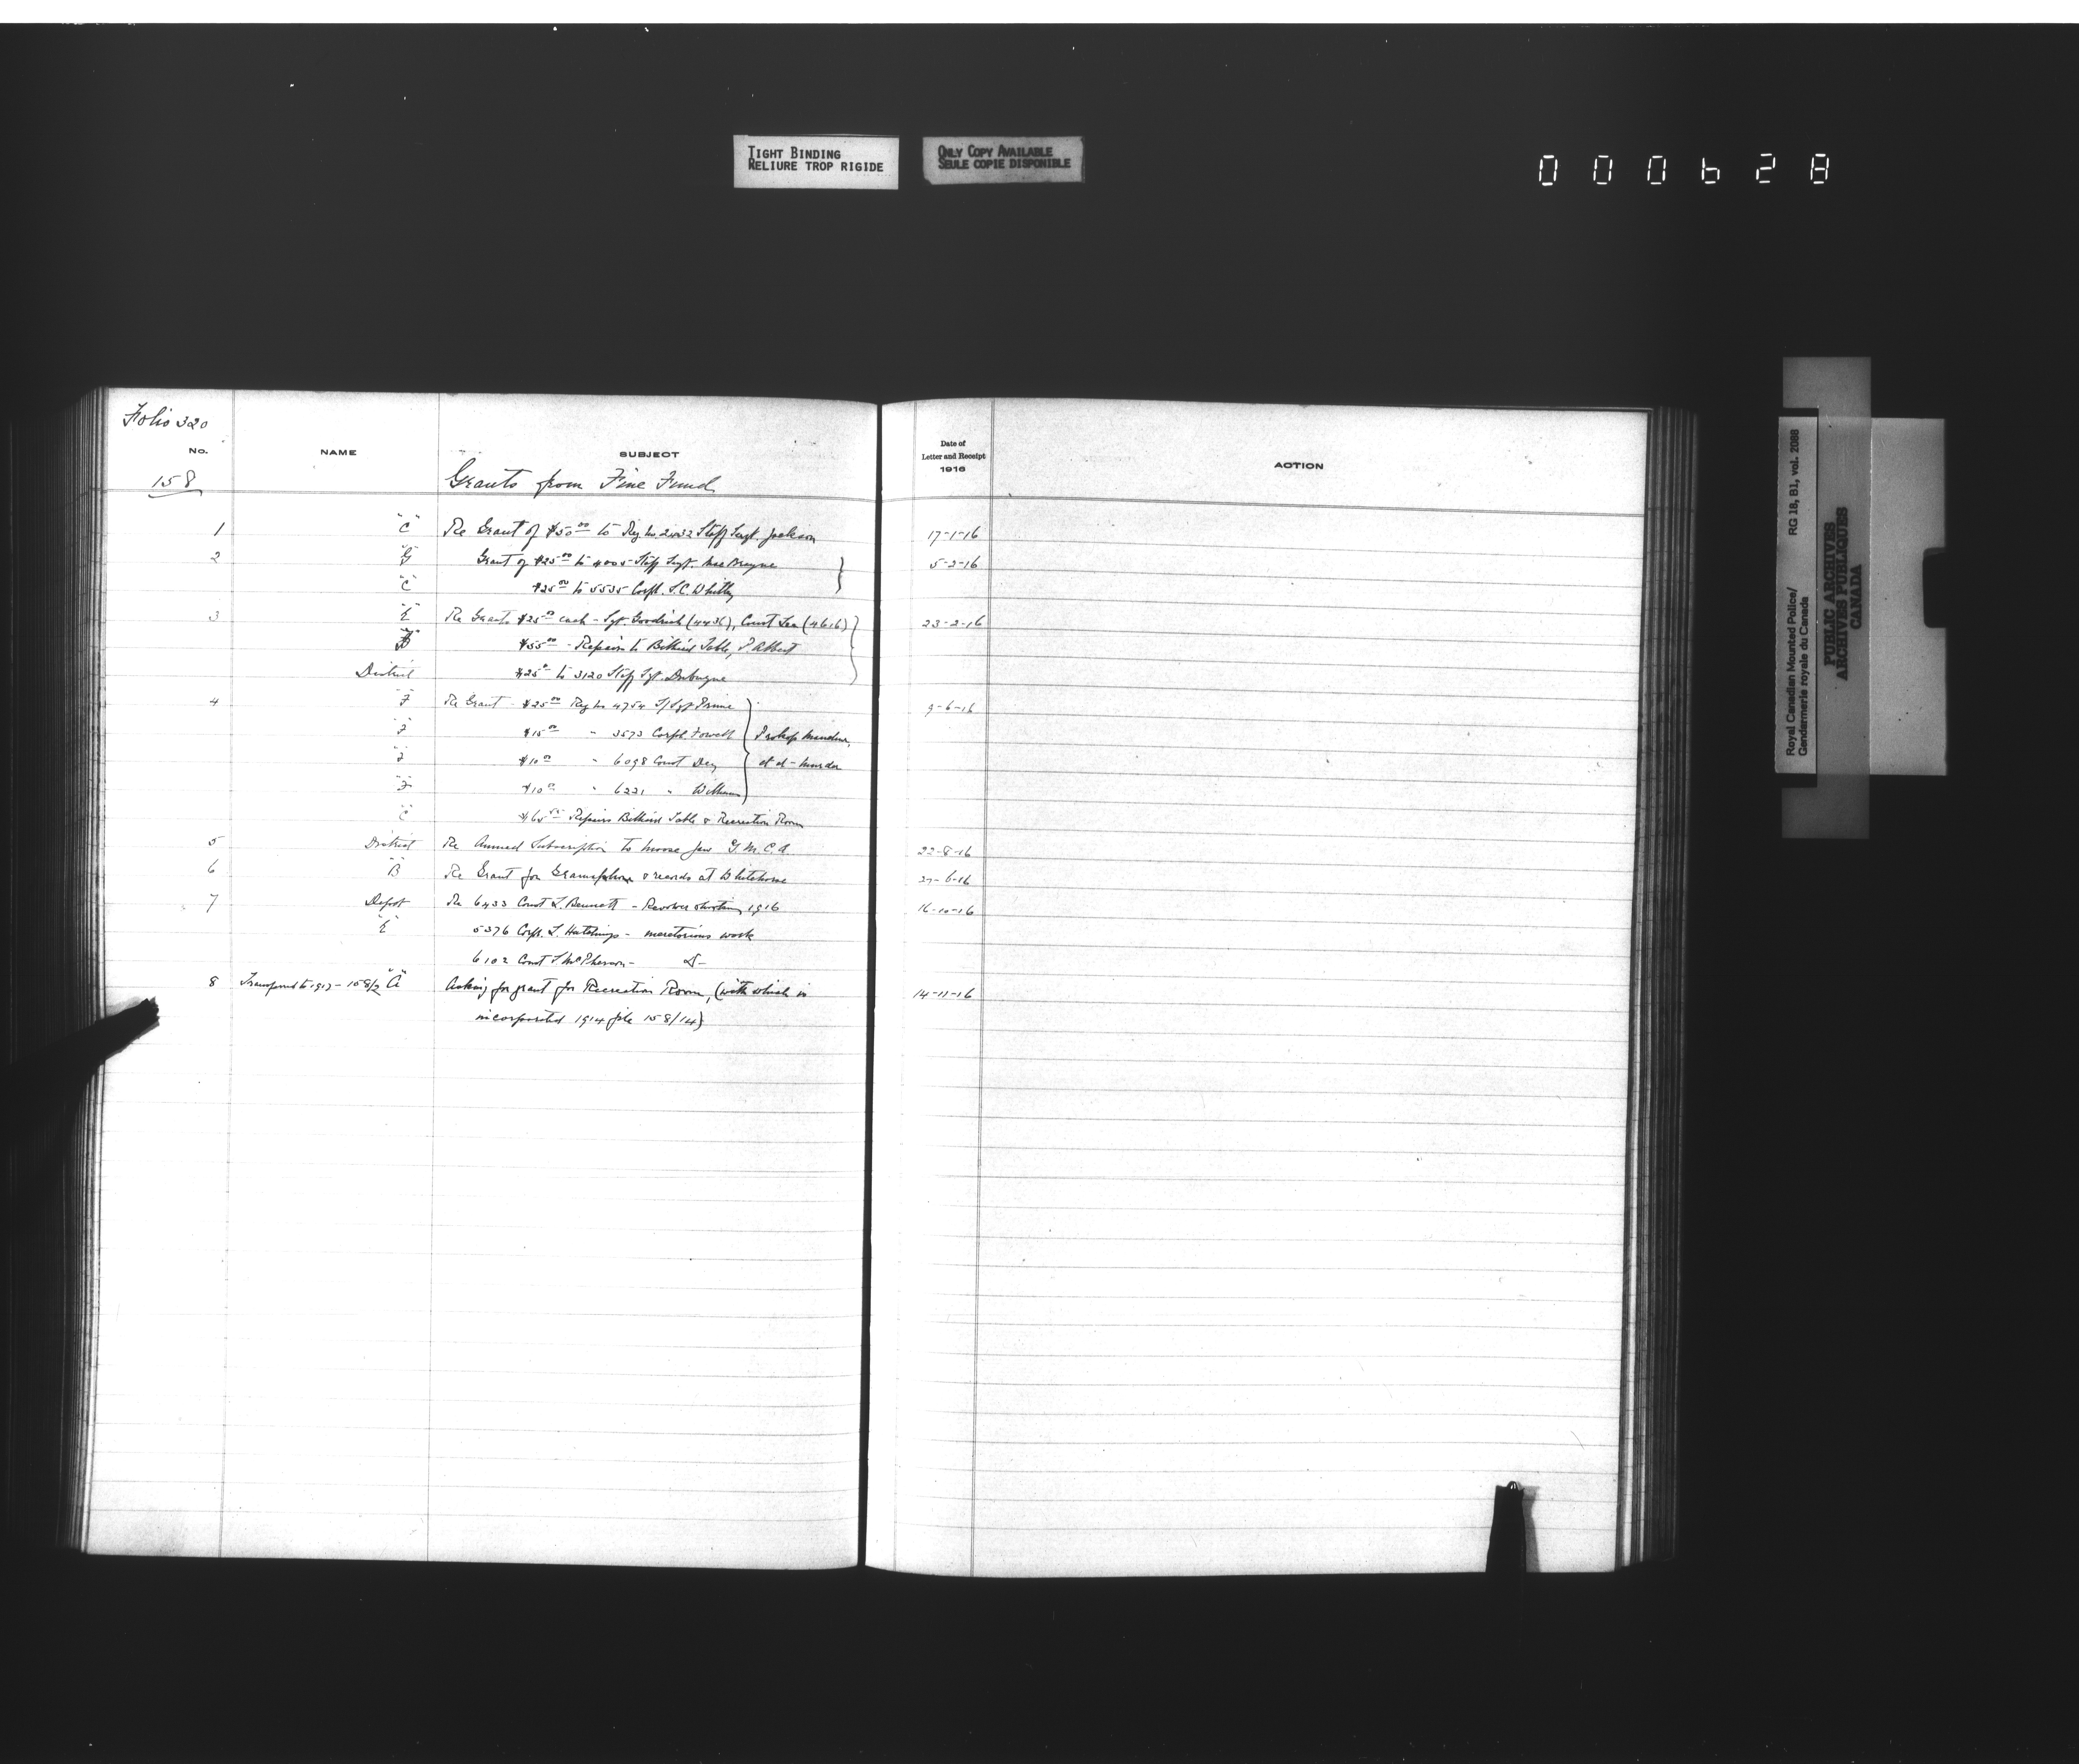 TIGHT BINDING
RELIURE TROP RIGIDE
ONLY COPY AVAILABLE
SEULE COPIE DISPONIBLE
000628
Folio 320
No. NAME SUBJECT Date of Letter and Receipt 1916 ACTION
158 Grants from Fine Fund
1 "C" Re Grant of $50.00 to Reg. No. Staff Sergt. Jackson 17-1-16
2 "G" Grant of $25.00 to 4005 Staff Sergt. 5-2-16
"C" $25.00 to 5535 Corpl. S.C. Whitley
3 "E" Re Grants $25.00 each - Sgt. Goodrich (4436), Const Lee (4616) 23-2-16
$55.00 - Repairs to Billiard Table, P. Albert
District $25.00 to 3120 Staff Sgt. Dubuque
4 "F" Re Grant - $25.00 Reg No 4754 S/Sgt Prime 9-6-16
"F" $15.00 " 3573 Corpl Fowell Prokop
"F" $10.00 " 6098 Const Dey et al - murder
"F" $10.00 " 6221 "
"C" $65.00 Repairs Billiard Table & Recreation Room
5 District Re Annual Subscription to Moose Jaw Y.M.C.A. 22-8-16
6 "B" Re Grant for Gramophone & records at Whitehorse 27-6-16
7 Depot Re 6433 Const L. Bennett - Revolver shooting 1916 16-10-16
"E" 5376 Corpl. L. Hutchings - meretorious work
6102 Const McPherson - do -
8 Transferred to 1917 - 158/2 "A" Asking for grant for Recreation Room, (with which is 14-11-16
incorporated 1914 file 158/14)
Royal Canadian Mounted Police/ RG 18, B1, vol. 2088
Gendarmerie royale du Canada
PUBLIC ARCHIVES
ARCHIVES PUBLIQUES
CANADA